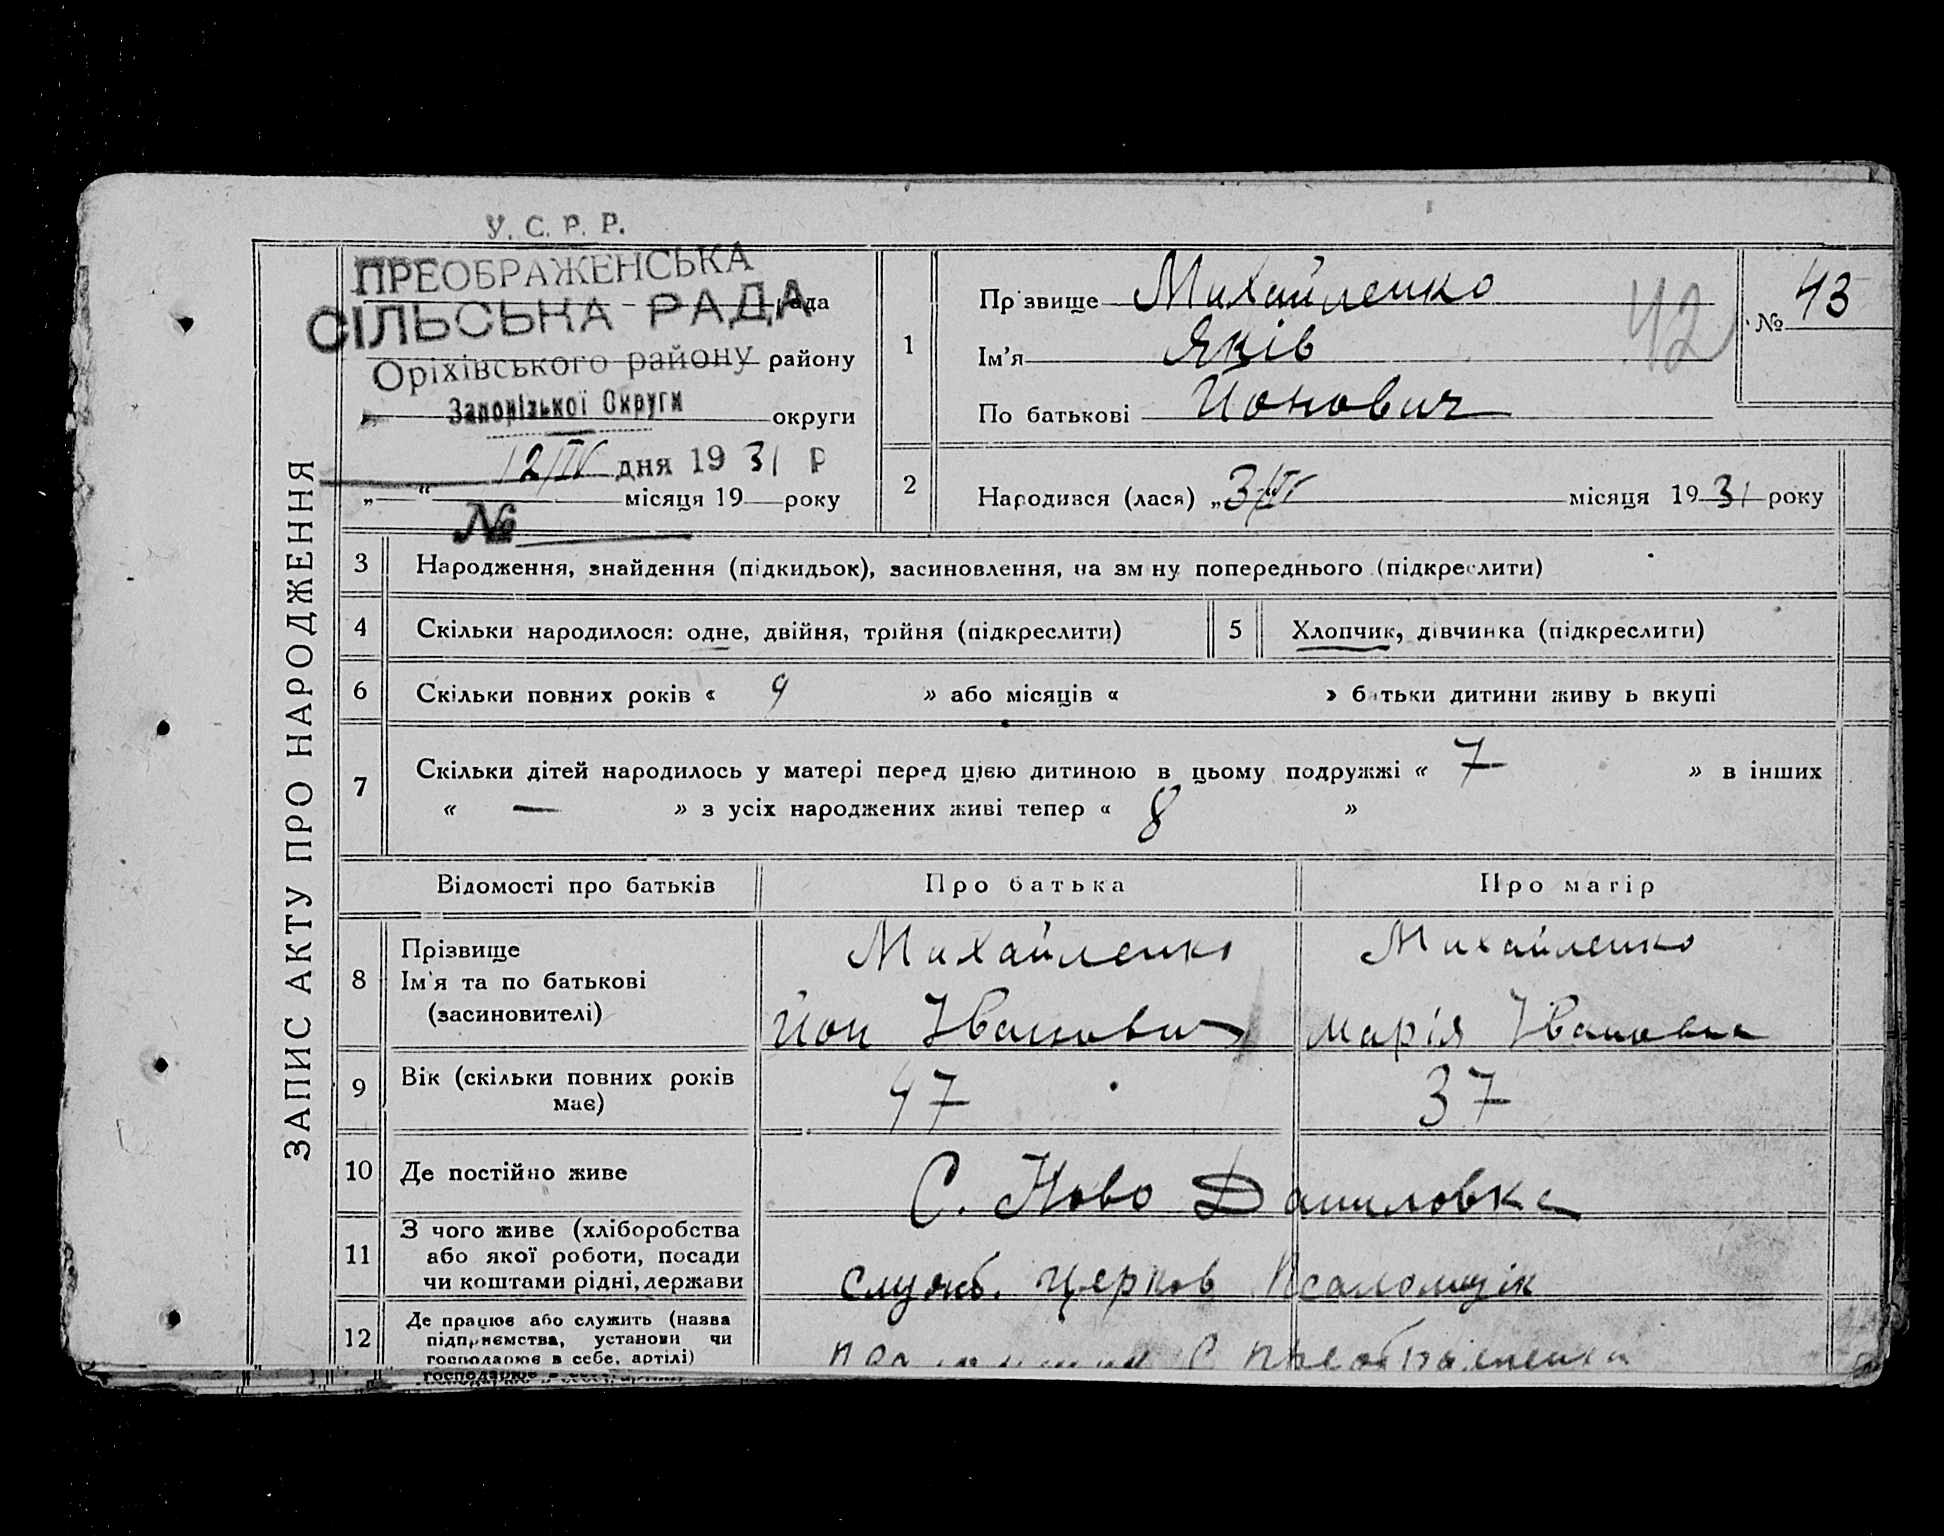 У. С. Р. Р.
ПРЕОБРАЖЕНСЬКА
СІЛЬСЬКА - РАДА
рада
Оріхівського району району
Запорізької Округи округи
12/IV дня 1931 р
„ “ місяця 19 року
№
ЗАПИС АКТУ ПРО НАРОДЖЕННЯ
1
Прізвище Михайленко
Ім’я Яків
По батькові Йонович
42
№ 43
2 Народився (лася) „3/IV місяця 1931 року
3 Народження, знайдення (підкидьок), засиновлення, на зміну попереднього (підкреслити)
4 Скільки народилося: одне, двійня, трійня (підкреслити)
5 Хлопчик, дівчинка (підкреслити)
6 Скільки повних років « 9 » або місяців « » батьки дитини живуть вкупі
7 Скільки дітей народилось у матері перед цією дитиною в цьому подружжі « 7 » в інших
« — » з усіх народжених живі тепер « 8 »
Відомості про батьків Про батька Про матір
8 Прізвище Михайленко Михайленко
Ім’я та по батькові
(засиновителі) Йон Іванович Марія Івановна
9 Вік (скільки повних років має) 47 37
10 Де постійно живе С. Ново Даниловка
11 З чого живе (хліборобства
або якої роботи, посади
чи коштами рідні, держави служб. церков Псаломщік
12 Де працює або служить (назва
підприємства, установи чи
господарює в себе, артілі) С Преображенки